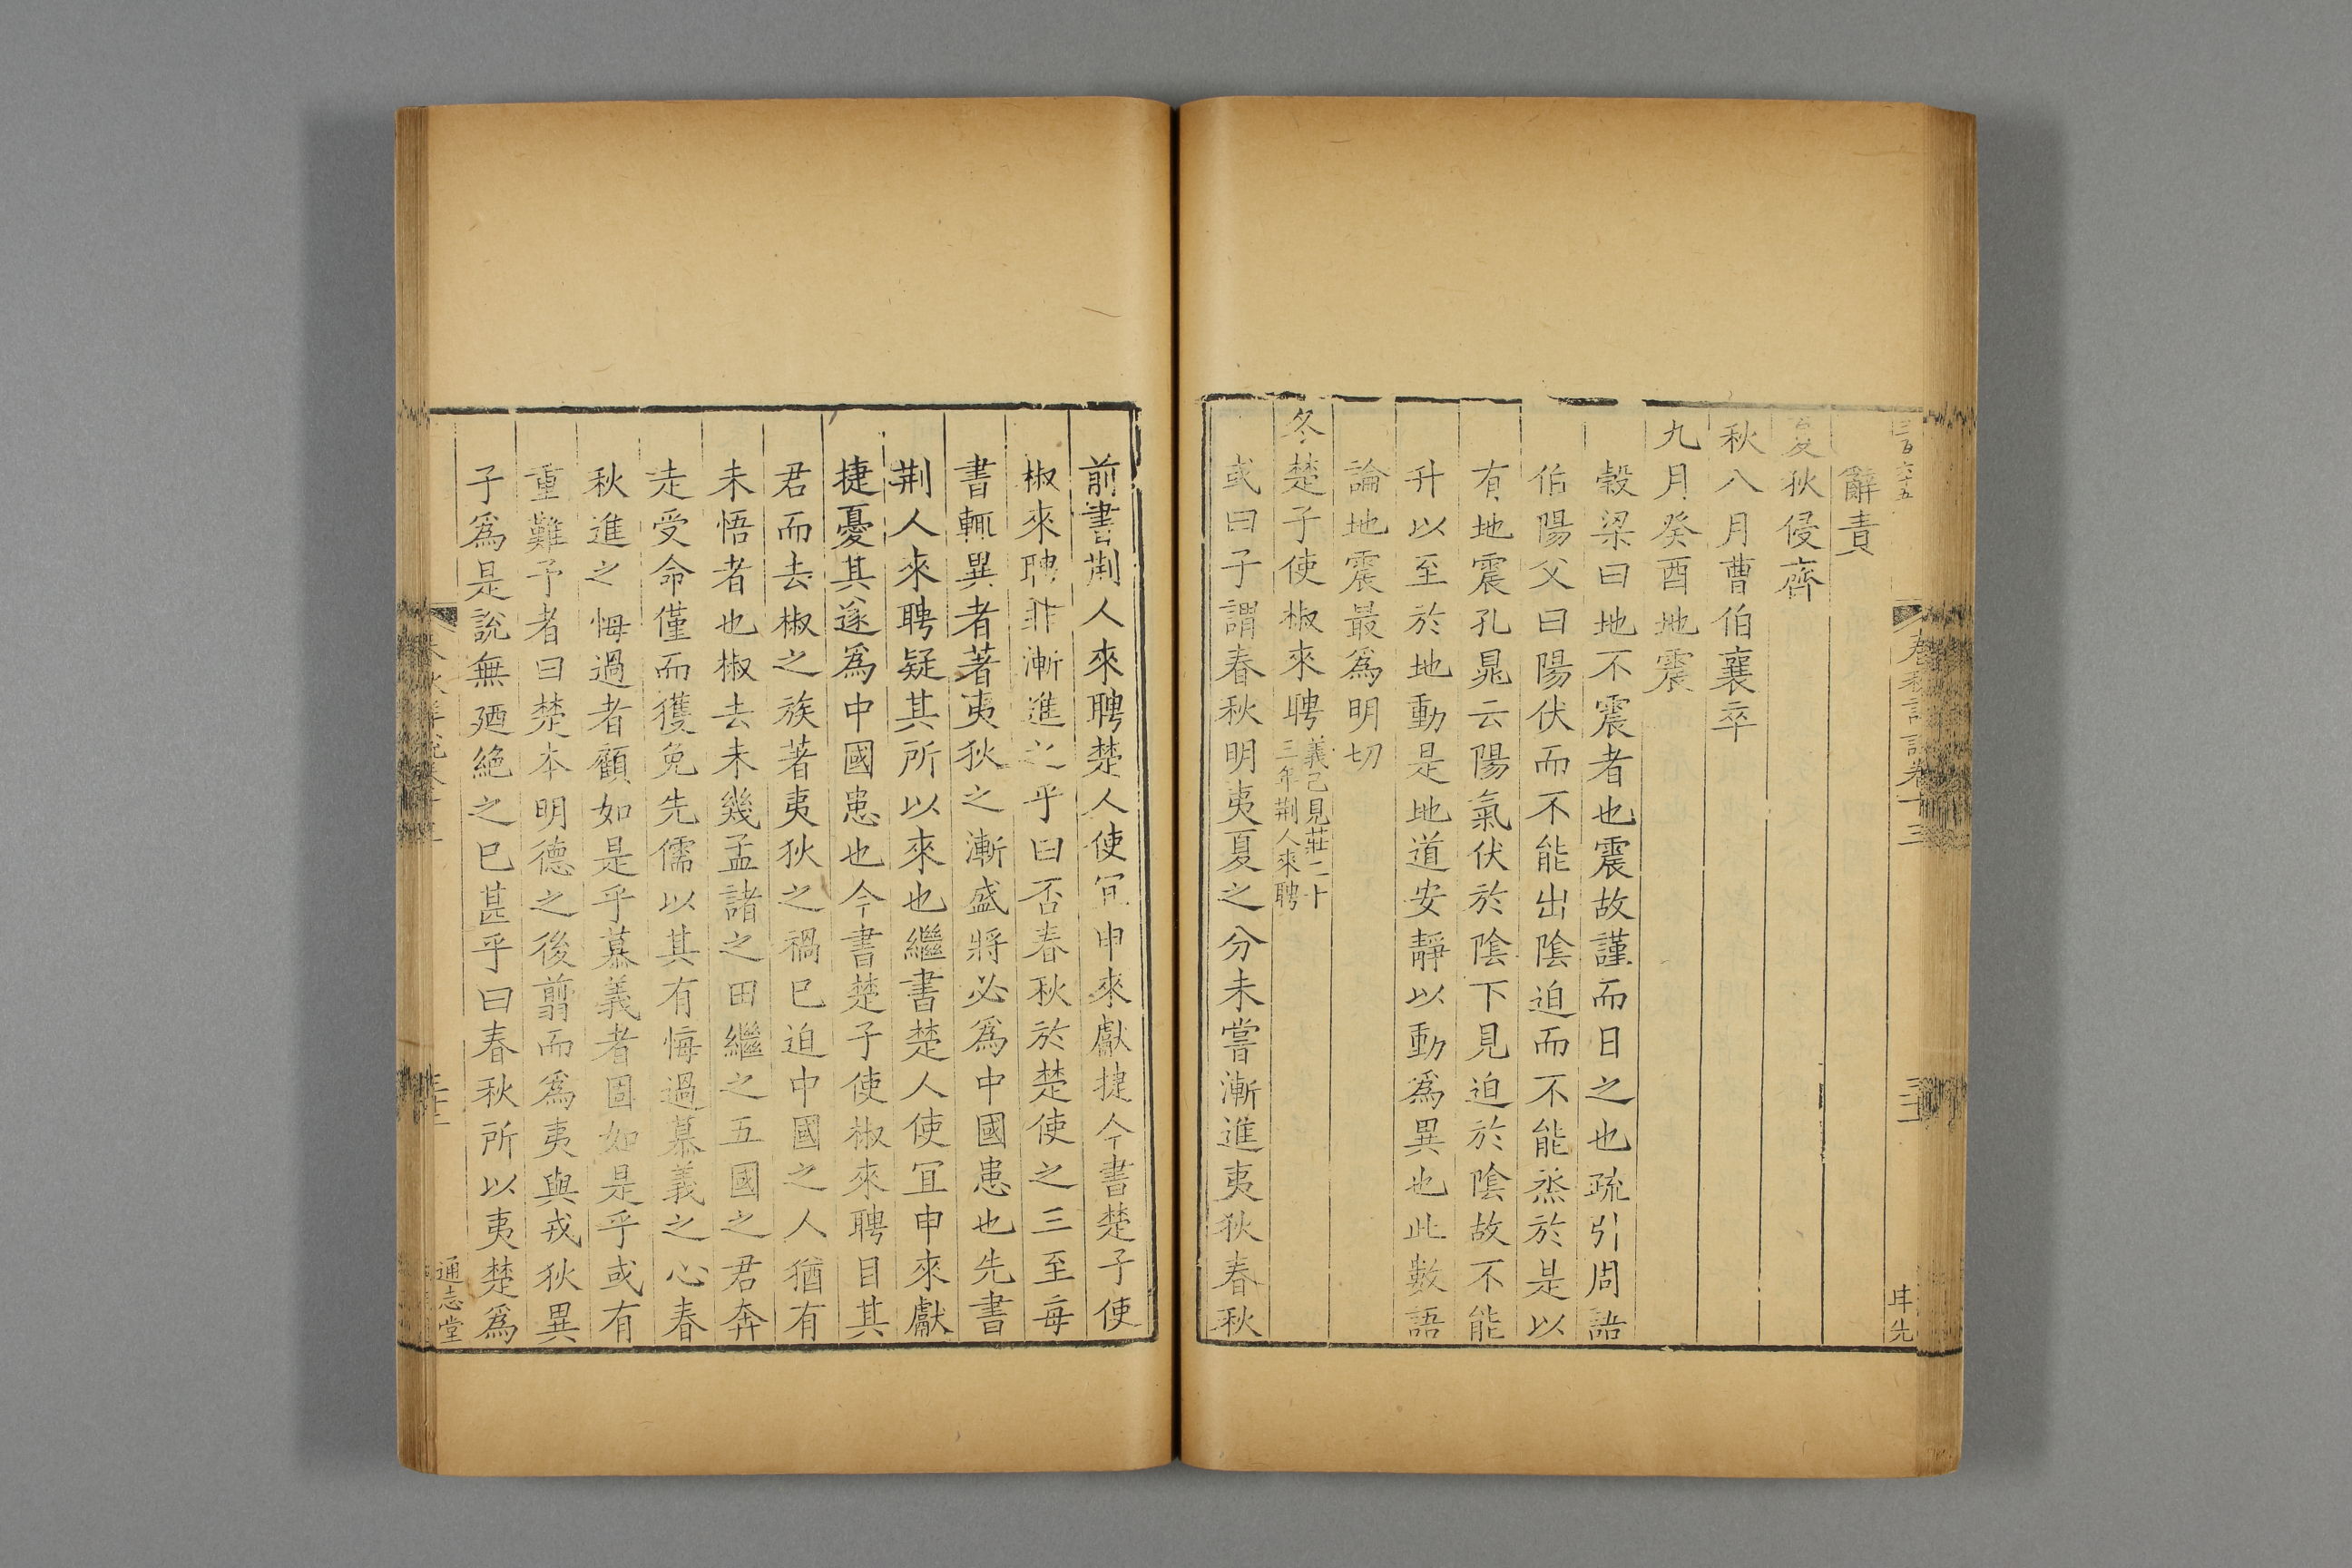 三百六十五
春秋詳說卷十三
辭責
夏狄侵齊
秋八月曹伯襄卒
九月癸酉地震
穀梁曰地不震者也震故謹而日之也疏引周語
伯陽父曰陽伏而不能出陰迫而不能烝於是以
有地震孔晁云陽氣伏於陰下見迫於陰故不能
升以至於地動是地道安靜以動為異也此數語
論地震最為明切
冬楚子使椒來聘義已見莊二十
三年荆人來聘
或曰子謂春秋明夷夏之分未嘗漸進夷狄春秋
前書荆人來聘楚人使宜申來獻捷今書楚子使
椒來聘非漸進之乎曰否春秋於楚使之三至每
書輒異者著夷狄之漸盛將必爲中國患也先書
荆人來聘疑其所以來也繼書楚人使宜申來獻
捷憂其遂爲中國患也今書楚子使椒來聘目其
君而去椒之族著夷狄之禍已迫中國之人猶有
未悟者也椒去未幾孟諸之田繼之五國之君奔
走受命僅而獲免先儒以其有悔過慕義之心春
秋進之悔過者顧如是乎慕義者固如是乎或有
重難予者曰楚本明德之後翦而爲夷與戎狄異
子爲是說無廼絶之已甚乎曰春秋所以夷楚爲
通志堂